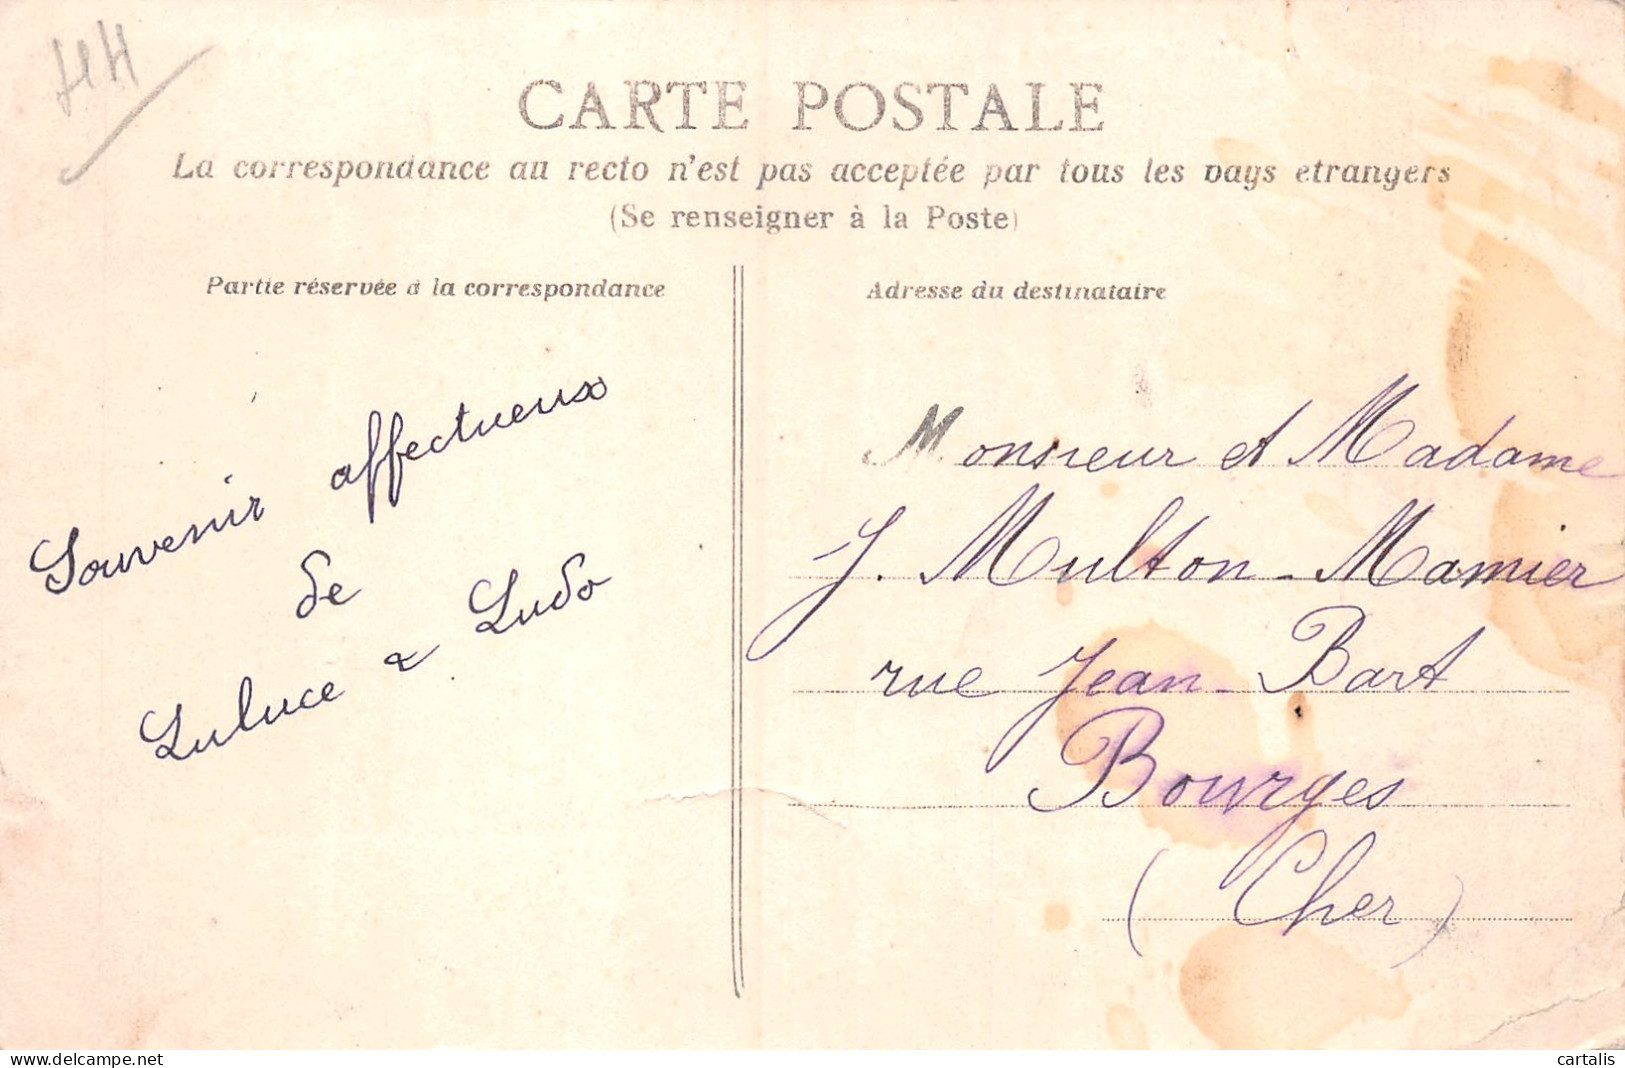 HH
CARTE POSTALE
La correspondance au recto n'est pas acceptée par tous les pays etrangers
(Se renseigner à la Poste)
Partie réservée à la correspondance
Souvenir affectueux
de
Luluce & Ludo
Adresse du destinataire
Monsieur et Madame
J. Multon-Mamier
rue Jean-Bart
Bourges
(Cher)
cartalis
www.delcampe.net